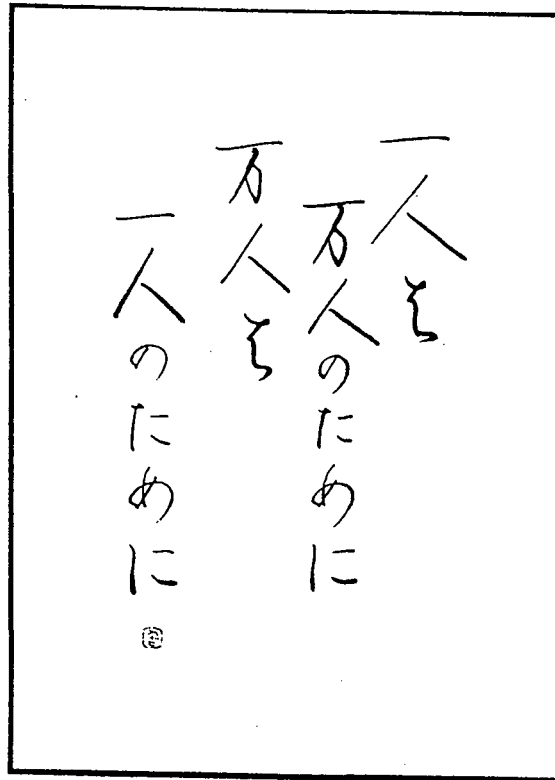 一人は
万人のために
万人は
一人のために